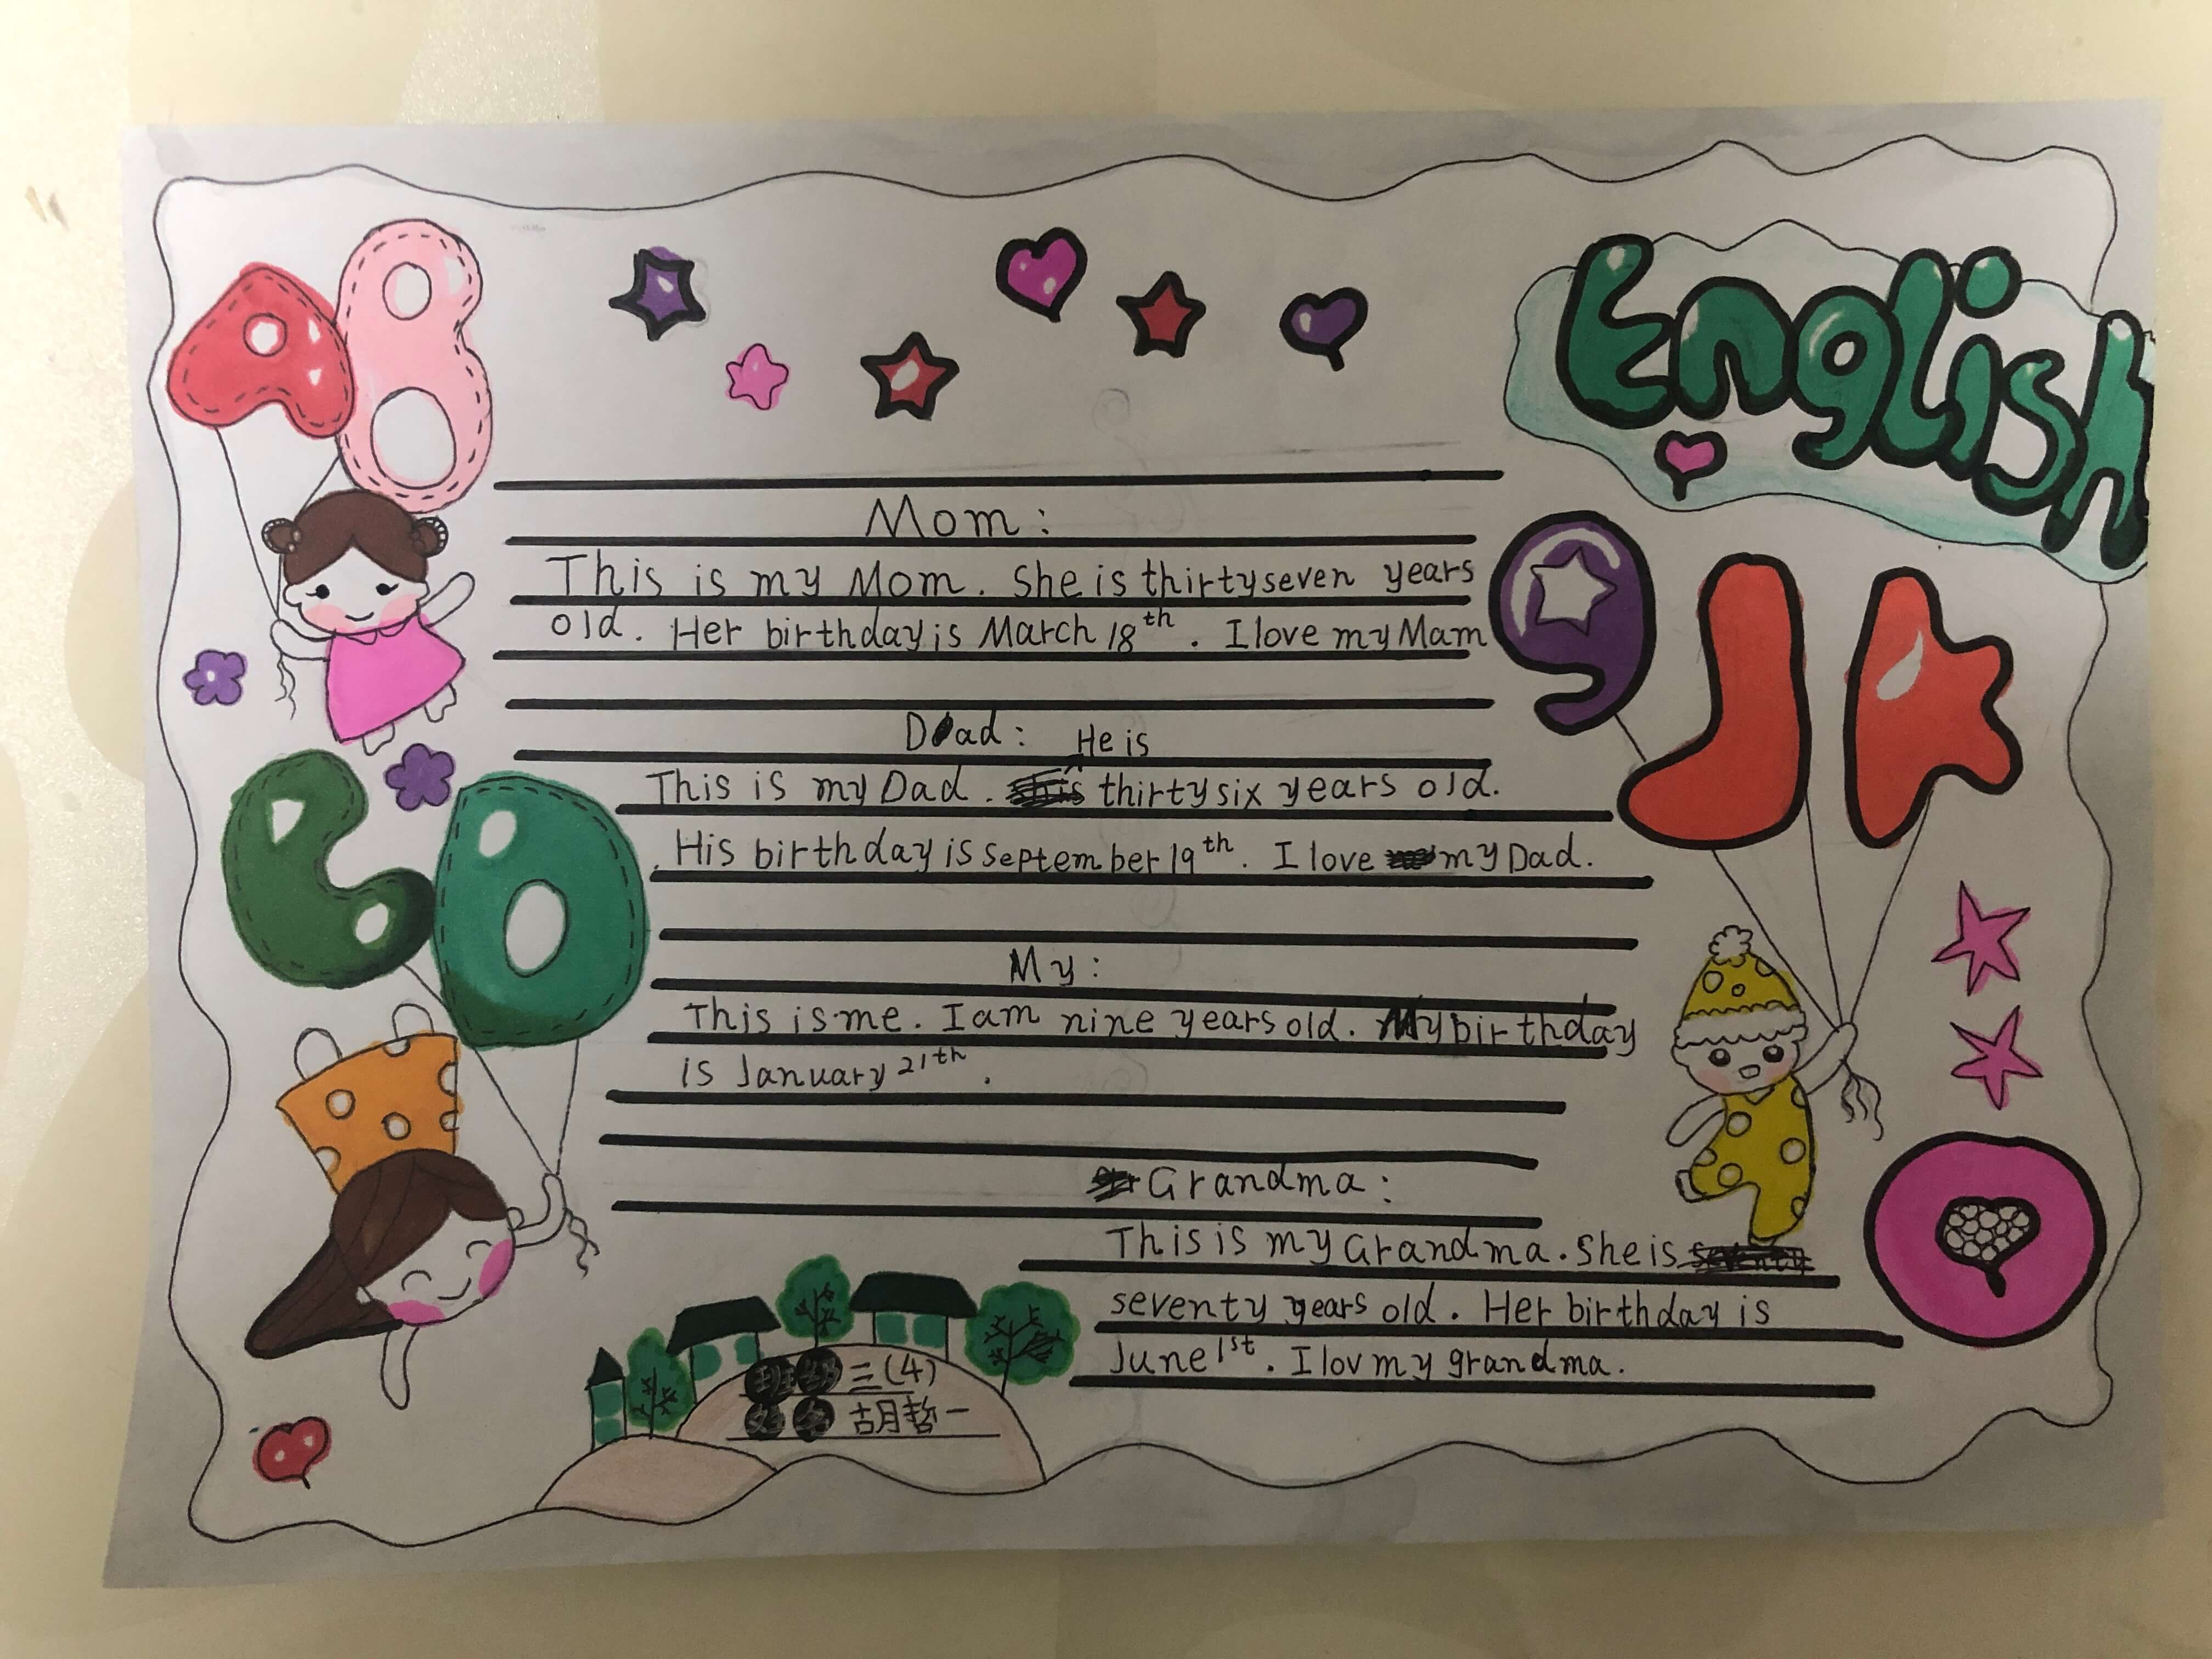 AB
English
Mom:
This is my Mom. She is thirtyseven years
old. Her birthday is March 18th. I love my Mam
9JK
Dad: He is
This is my Dad. thirtysix years old.
His birthday is September 19th. I love my Dad.
CD
My:
This is me. I am nine years old. My birthday
is January 21th.
Grandma:
This is my Grandma. She is
seventy years old. Her birthday is
June 1st. I lov my grandma.
班级 三(4)
姓名 胡哲一